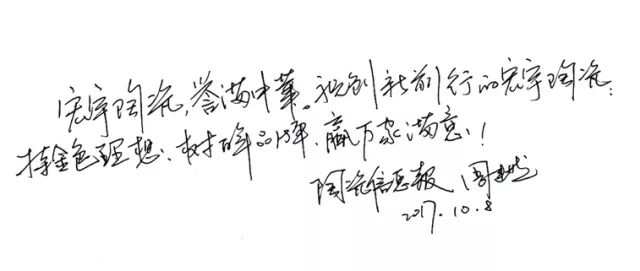 宏宇陶瓷,誉满中华。祝创新前行的宏宇陶瓷:
持金色理想:树牌品牌、赢万家满意!
陶瓷信息报 周
2017.10.8